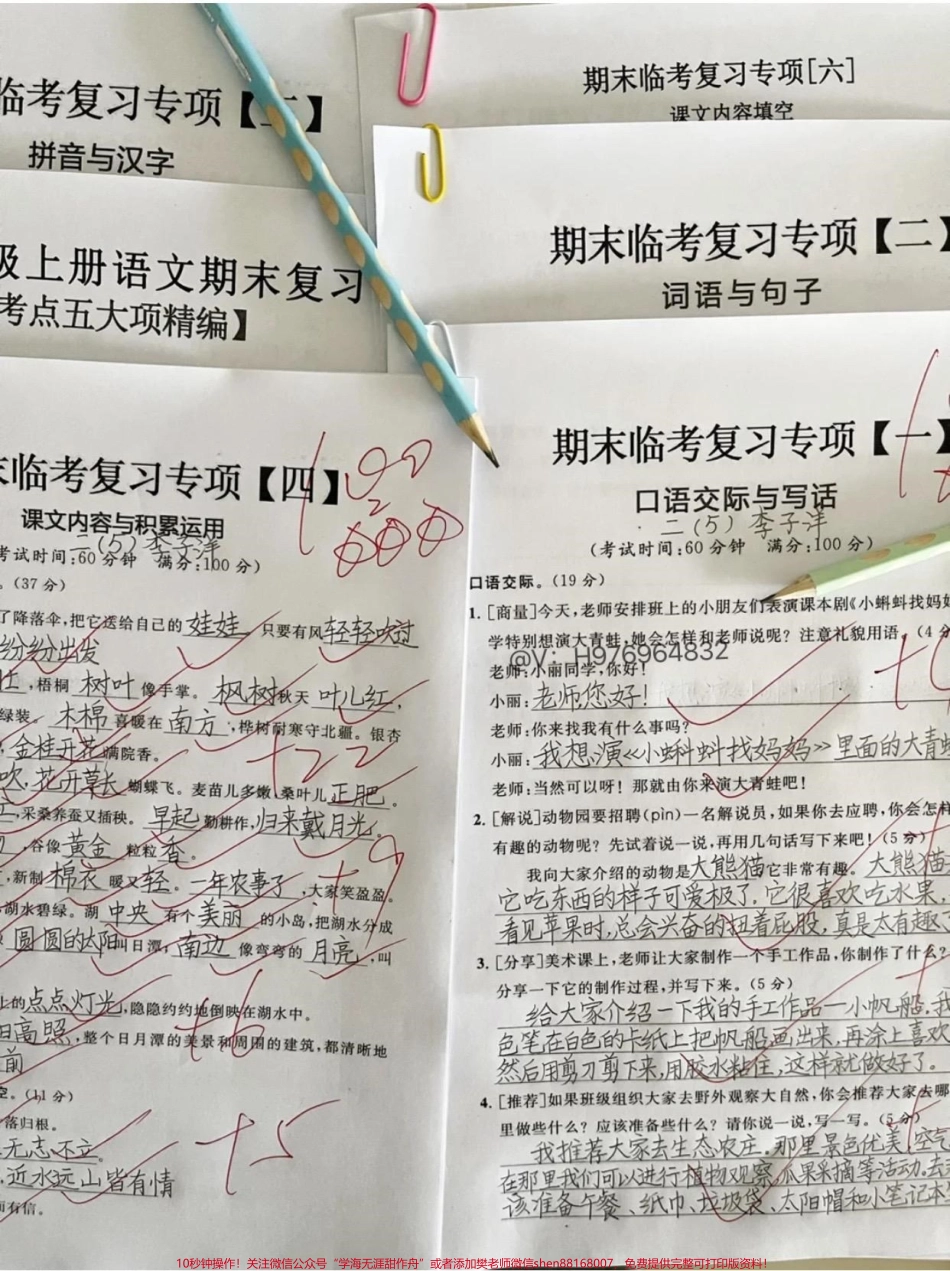 临考复习专项【三】
拼音与汉字
期末临考复习专项[六]
课文内容填空
级上册语文期末复习
考点五大项精编】
期末临考复习专项【二】
词语与句子
末临考复习专项【四】
100
课文内容与积累运用
二(5) 李子洋
考试时间:60分钟 满分:100分)
。(37分)
了降落伞,把它送给自己的 娃娃 只要有风 轻轻吹过
纷纷出发
,梧桐 树叶 像手掌。 枫树 秋天 叶儿红,
绿装。 木棉 喜暖在 南方 ,桦树耐寒守北疆。银杏
,金桂开花 满院香。
吹, 花开草长 蝴蝶飞。麦苗儿多嫩,桑叶儿 正肥 。
+22
,采桑养蚕又插秧。 早起 勤耕作, 归来戴月光。
,谷像 黄金 粒粒 香 。
,新制 棉衣 暖又 轻。 一年农事了 ,大家笑盈盈。
+9
湖水碧绿。湖 中央 有个 美丽 的小岛,把湖水分成
圆圆的太阳 叫日潭; 南边 像弯弯的 月亮 ,叫
上的 点点灯光 ,隐隐约约地倒映在湖水中。
阳高照 ,整个日月潭的美景和周围的建筑,都清晰地
前
+6
空。(11分)
落归根。
无志不立。
+5
,近水远山皆有情
而有信。
期末临考复习专项【一】
口语交际与写话
二(5) 李子洋
(考试时间:60分钟 满分:100分)
口语交际。(19分)
1. [商量]今天,老师安排班上的小朋友们表演课本剧《小蝌蚪找妈妈
学特别想演大青蛙,她会怎样和老师说呢?注意礼貌用语。(4分
@V: H976964832
老师:小丽同学,你好!
小丽: 老师,您好!
老师:你来找我有什么事吗?
小丽: 我想演《小蝌蚪找妈妈》里面的大青蛙
老师:当然可以呀!那就由你来演大青蛙吧!
2. [解说]动物园要招聘(pìn)一名解说员,如果你去应聘,你会怎样
有趣的动物呢?先试着说一说,再用几句话写下来吧!(5分)
我向大家介绍的动物是 大熊猫 它非常有趣。 大熊猫
它吃东西的样子可爱极了。它很喜欢吃水果,
看见苹果时,总会兴奋的扭着屁股,真是太有趣
3. [分享]美术课上,老师让大家制作一个手工作品,你制作了什么?
分享一下它的制作过程,并写下来。(5分)
给大家介绍一下我的手工作品—小帆船。我
色笔在白色的卡纸上把帆船画出来,再涂上喜欢
然后用剪刀剪下来,用胶水粘住,这样就做好了。
4. [推荐]如果班级组织大家去野外观察大自然,你会推荐大家去哪
里做些什么?应该准备些什么?请你说一说,写一写。(5分)
我推荐大家去生态农庄。那里景色优美,空气
在那里我们可以进行植物观察,瓜果采摘等活动。去
该准备午餐、纸巾、垃圾袋、太阳帽和小笔记本
10秒钟操作!关注微信公众号“学海无涯甜作舟”或者添加樊老师微信shen88168007 免费提供完整可打印版资料!